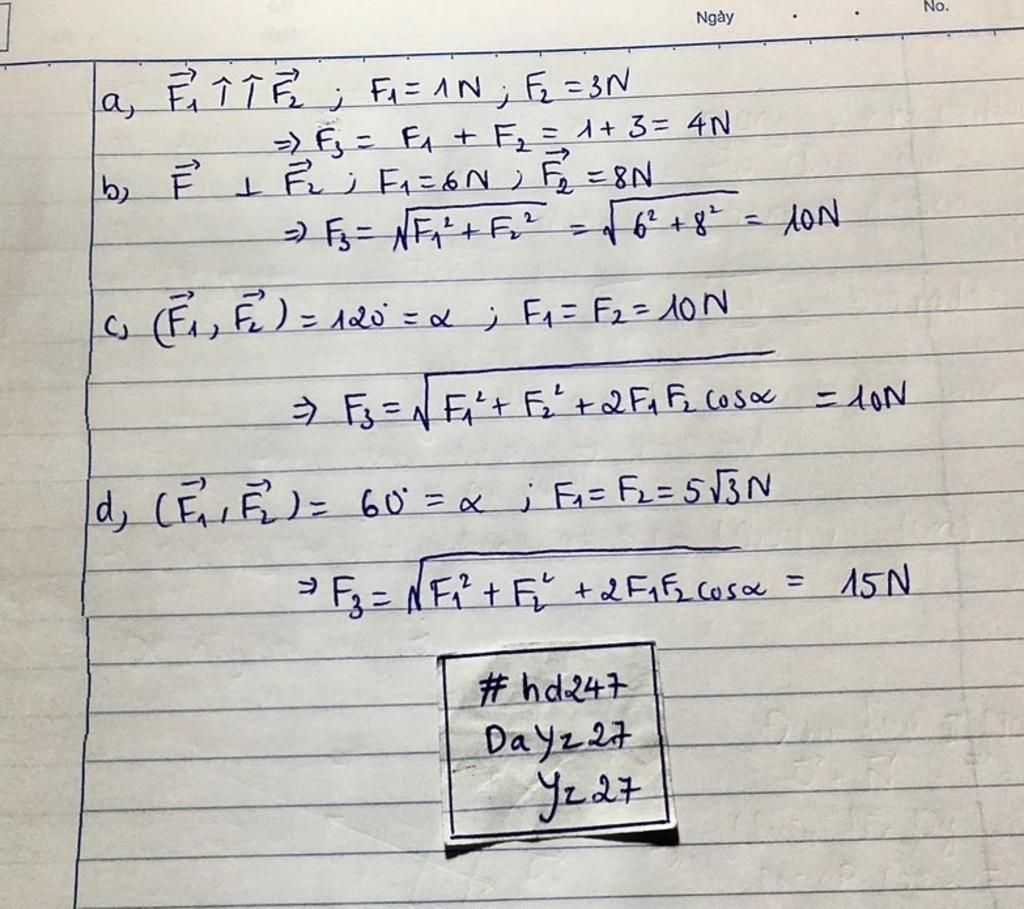 Ngày . . No.
a, F₁⃗ ↑↑ F₂⃗ ; F₁ = 1N ; F₂ = 3N
⇒ F₃ = F₁ + F₂ = 1 + 3 = 4N
b, F⃗ ⊥ F₂⃗ ; F₁ = 6N ; F₂⃗ = 8N
⇒ F₃ = √(F₁² + F₂²) = √(6² + 8²) = 10N
c, (F₁⃗, F₂⃗) = 120° = α ; F₁ = F₂ = 10N
⇒ F₃ = √(F₁² + F₂² + 2F₁F₂ cosα) = 10N
d, (F₁⃗, F₂⃗) = 60° = α ; F₁ = F₂ = 5√3N
⇒ F₃ = √(F₁² + F₂² + 2F₁F₂ cosα) = 15N
# hd247
DaYz27
Yz27